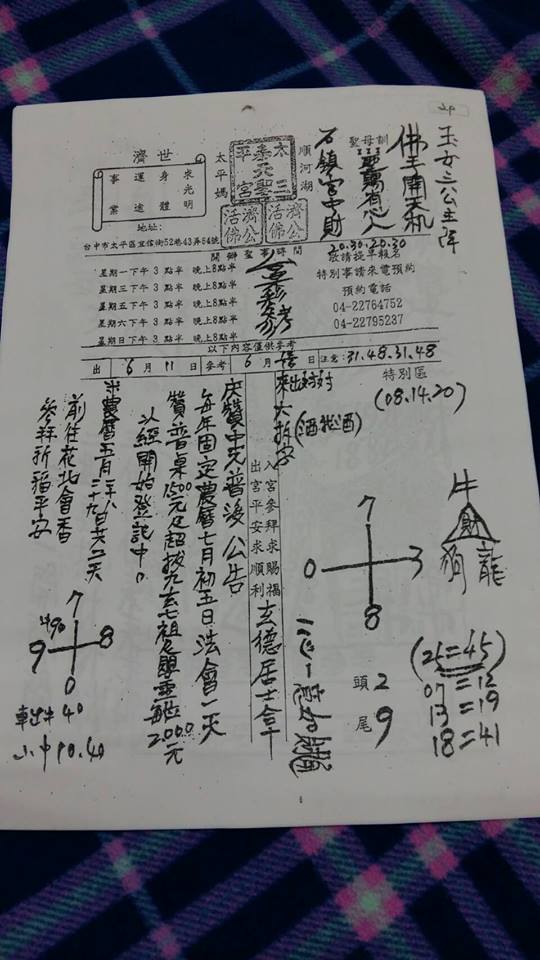 玉女三公主降
佛王南天机
聖母訓
聖賜有心人
石鎮宮中財
順河湖
太三
天聖
平宮
濟公活佛
濟公活佛
太平媽
濟世
求光明
身體
運途
事業
地址:
台中市太平區宜信街52巷43弄64號
開辦聖事時間
星期一下午 3 點半 晚上8點半
星期三下午 3 點半 晚上8點半
星期五下午 3 點半 晚上8點半
星期六下午 3 點半 晚上8點半
星期日下午 3 點半 晚上8點半
參考
20.30.20.30
敬請提早報名
特別事請來電預約
預約電話
04-22764752
04-22795237
以下內容僅供參考
出 6 月 11 日參考 6 月 日 注意: 31.48.31.48
特別區
(08.14.20)
牛
財
狗 龍
7
0 3
8
(25=45)
07=12
13=19
18=41
頭 2
尾 9
入宮參拜求賜福
出宮平安求順利
玄德居士拿
央贊中元普渡公告
每年固定農曆七月初五日法會一天
贊普桌1500元足超拔九玄七祖 2000元
以經開始登記中。
農曆五月二十八二十九日共二天
前往花北會香
參拜祈福平安
490
7
9 8
0
車出牛 40
小中 90.40